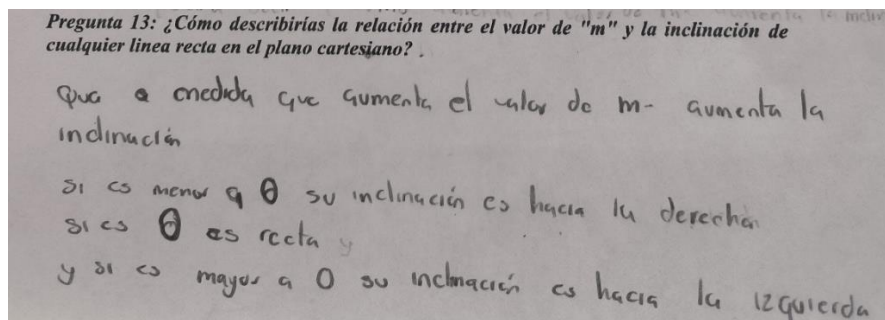 Pregunta 13: ¿Cómo describirías la relación entre el valor de "m" y la inclinación de
cualquier linea recta en el plano cartesiano? .
Que a medida que aumenta el valor de m- aumenta la
inclinación
si es menor a 0 su inclinación es hacia la derecha
si es 0 es recta y
y si es mayor a 0 su inclinación es hacia la izquierda